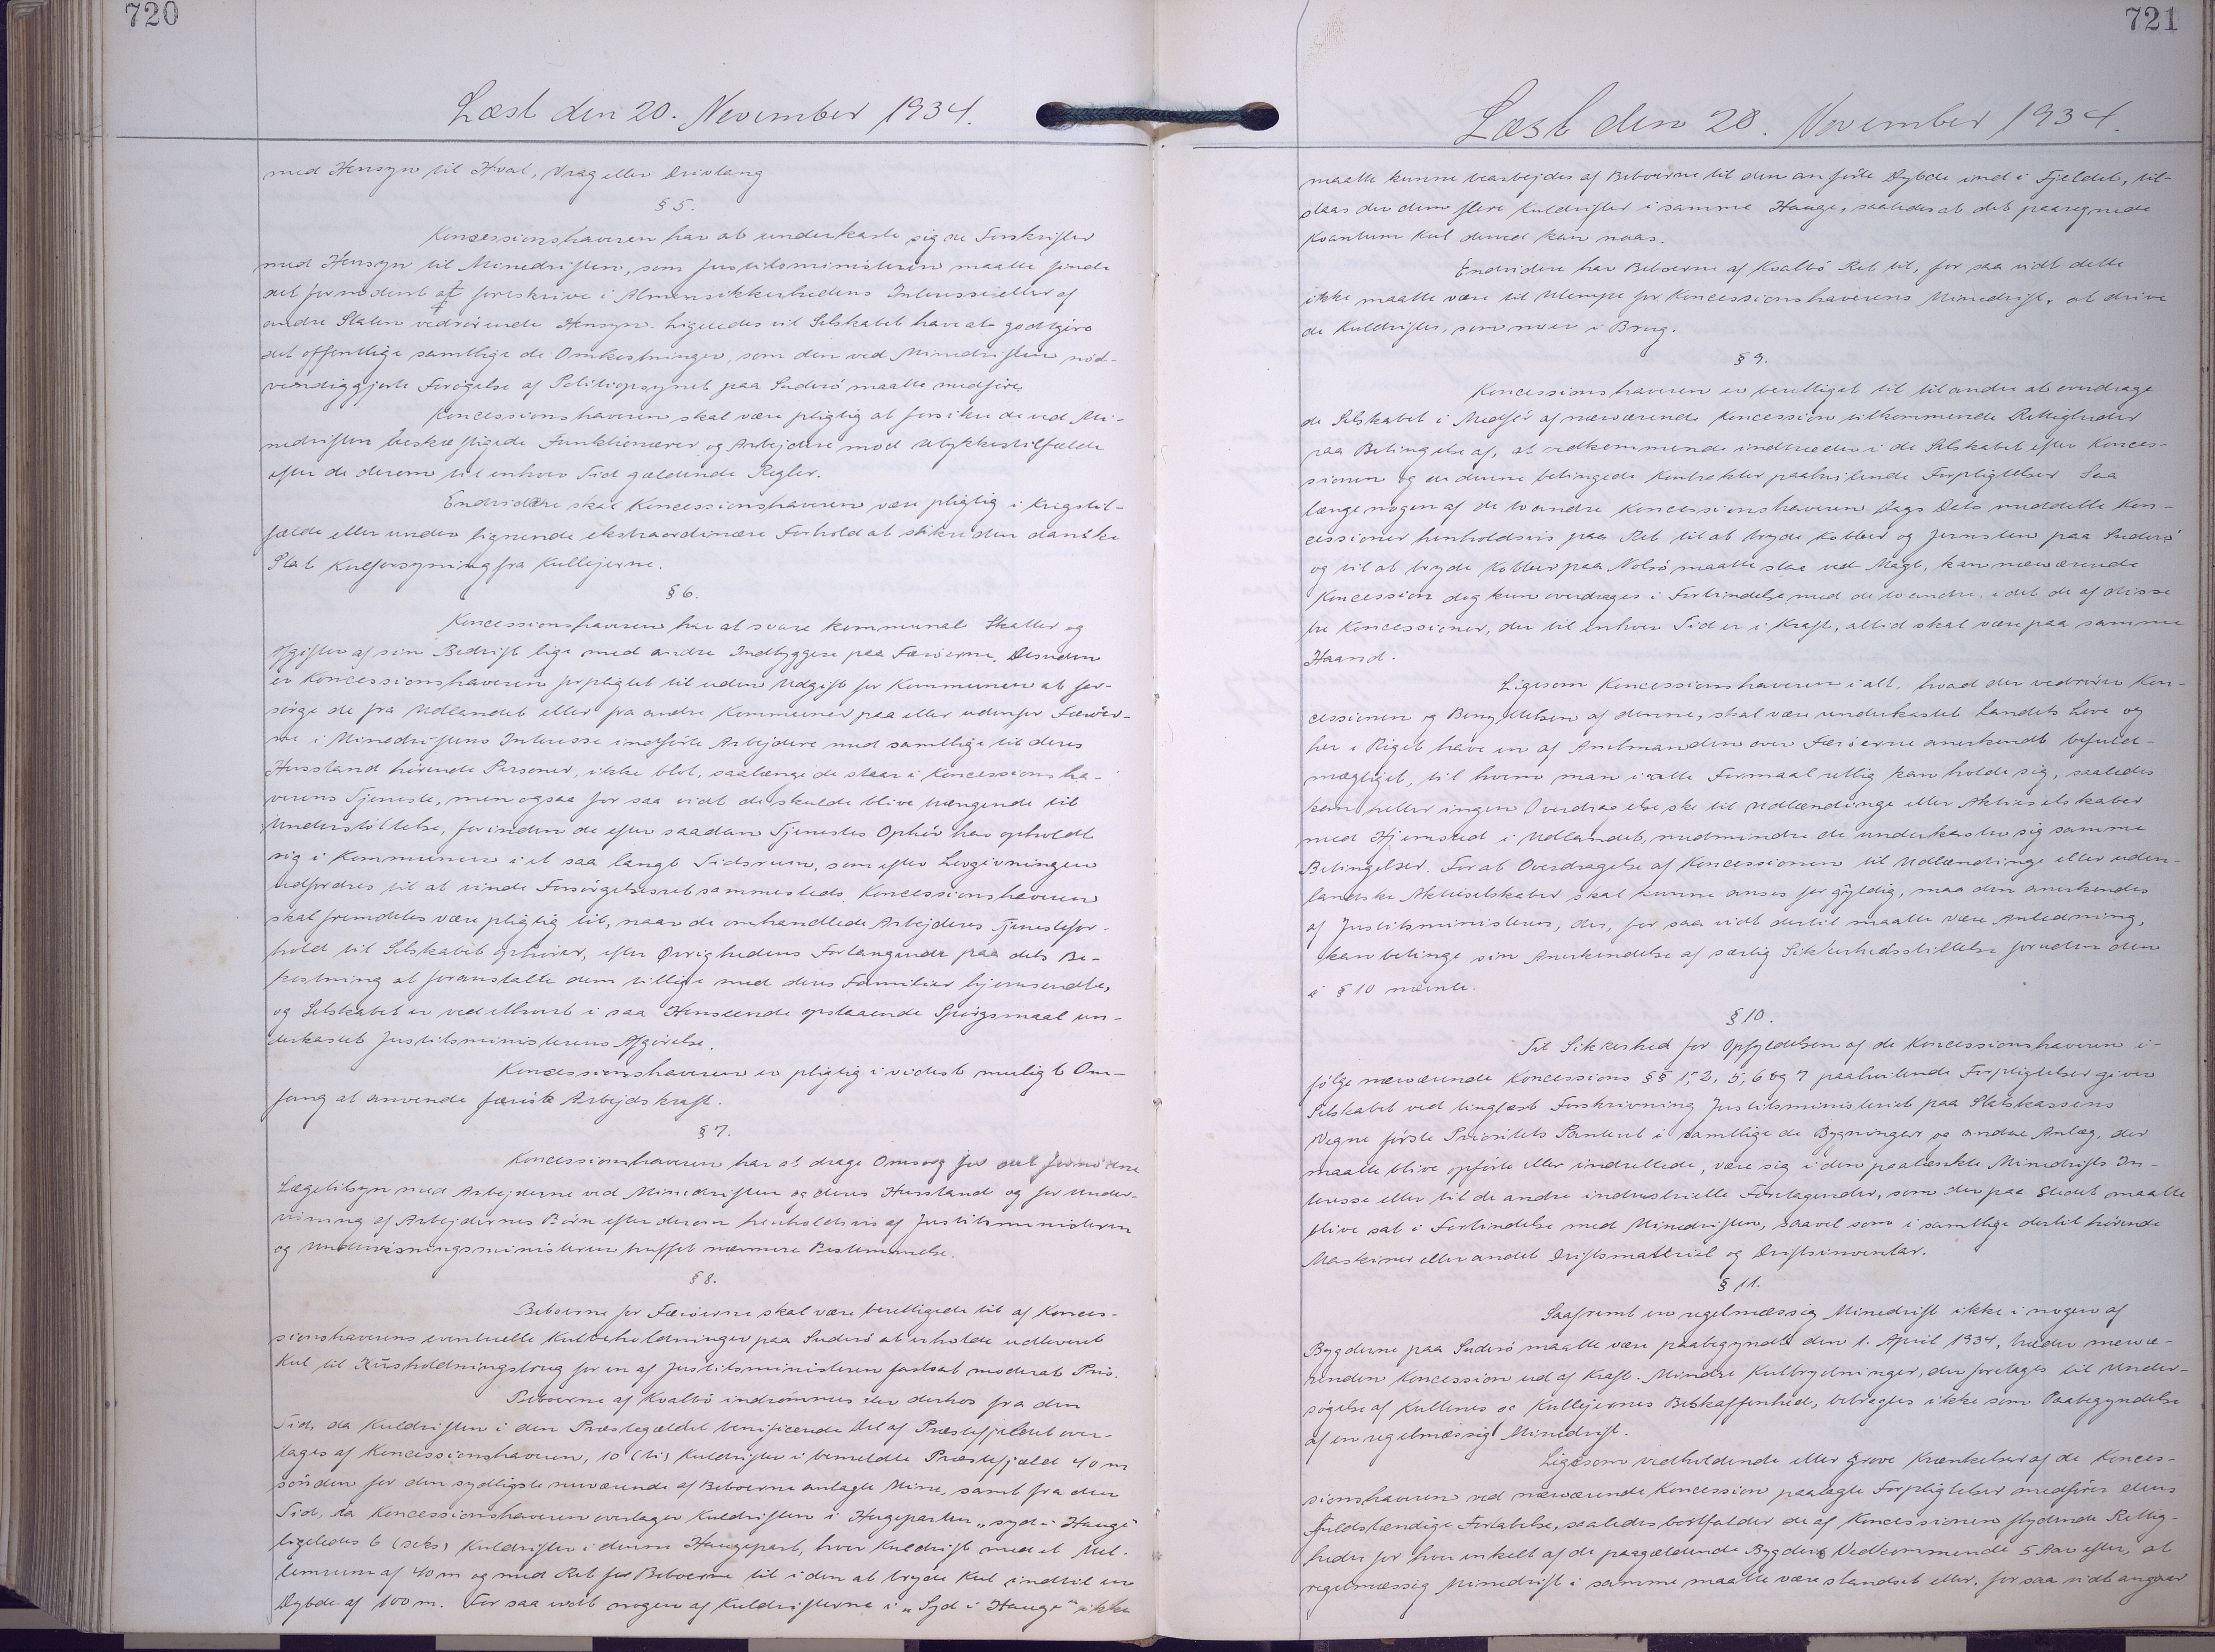 720
Læst den 20. November 1934.
med Hensyn til Hval, Vrag eller Drivtang
§ 5.
Koncessionshaveren har at underkaste sig de Forskrifter
med Hensyn til Minedriften, som Justitsministeren maatte finde
det fornødent at foreskrive i Almensikkerhedens Interesse eller af
andre Staten vedrørende Hensyn. Ligeledes vil Selskabet have at godtgøre
det offentlige samtlige de Omkostninger, som den ved Minedriften nød-
vendiggjorte Forøgelse af Politiopsynet paa Suderø maatte medføre.
Koncessionshaveren skal være pligtig at forsikre de ved Mi-
nedriften beskæftigede Funktionærer og Arbejdere mod Ulykkestilfælde
efter de derom til enhver Tid gældende Regler.
Endvidere skal Koncessionshaveren være pligtig i Krigstil-
fælde eller under lignende ekstraordinære Forhold at sikre den danske
Stat Kulforsyning fra Kullejerne.
§ 6.
Koncessionshaveren har at svare kommunal Skatter og
Afgifter af sin Bedrift lige med andre Indbyggere paa Færøerne. Desuden
er Koncessionshaveren forpligtet til uden Udgift for Kommunen at for-
sørge de fra Udlandet eller fra andre Kommuner paa eller udenfor Færøer-
ne i Minedriftens Interesse indførte Arbejdere med samtlige til deres
Husstand hørende Personer, ikke blot, saalænge de staar i Koncessionsha-
verens Tjeneste, men ogsaa for saa vidt de skulde blive trængende til
Understøttelse, forinden de efter saadan Tjenestes Ophør har opholdt
sig i Kommunen i et saa langt Tidsrum, som efter Lovgivningen
udfordres til at vinde Forsørgelsesret sammesteds. Koncessionshaveren
skal fremdeles være pligtig til, naar de omhandlede Arbejderes Tjenestefor-
hold til Selskabet ophører, efter Øvrighedens Forlangende paa dets Be-
kostning at foranstalte dem tillige med deres Familier hjemsendte,
og Selskabet er ved ethvert i saa Henseende opstaaende Spørgsmaal un-
derkastet Justitsministerens Afgørelse.
Koncessionshaveren er pligtig i videst muligt Om-
fang at anvende færøsk Arbejdskraft.
§ 7.
Koncessionshaveren har at drage Omsorg for det fornødne
Lægetilsyn med Arbejderne ved Minedriften og deres Husstand og for Under-
visning af Arbejdernes Børn efter derom henholdsvis af Justitsministeren
og Undervisningsministeren truffet nærmere Bestemmelse.
§ 8.
Beboerne for Færøerne skal være berettigede til af Konces-
sionshaverens eventuelle Kulbeholdninger paa Suderø at erholde udleveret
Kul til Husholdningsbrug for en af Justitsministeren fastsat moderat Pris.
Beboerne af Kvalbø indrømmes der derhos fra den
Tid, da Kuldriften i den Præstegældet beneficerede Del af Præstefjeldet over-
tages af Koncessionshaveren, 10 (ti) Kuldrifter i bemeldte Præstefjeld 40 m
sønden for den sydligste nuværende af Beboerne anlagte Mine, samt fra den
Tid, da Koncessionshaveren overtager Kuldriften i Hugeparten "syd i Hauge"
ligeledes 6 (seks) Kuldrifter i denne Haugepart, hver Kuldrift med et Mel-
lemrum af 40 m og med Ret for Beboerne til i den at bryde Kul indtil en
Dybde af 100 m. For saa vidt nogen af Kuldrifterne i "Syd i Hauge" ikke
721
Læst den 20. November 1934.
maatte kunne bearbejdes af Beboerne til den anførte Dybde ind i Fjeldet, til-
staas der dem flere Kuldrifter i samme Hauge, saaledes at det paaregnede
Kvantum Kul derved kan naas.
Endvidere har Beboerne af Kvalbø Ret til, for saa vidt dette
ikke maatte være til Ulempe for Koncessionshaverens Minedrift, at drive
de Kuldrifter, som nu er i Brug.
§ 9.
Koncessionshaveren er berettiget til til andre at overdrage
de Selskabet i Medfør af nærværende Koncession tilkommende Rettigheder
paa Betingelse af, at vedkommende indtræder i de Selskabet efter Konces-
sionen og de denne betingede Kontrakter paahvilende Forpligtelser Saa
længe nogen af de to andre Koncessionshaveren Dags Dato meddelte Kon-
cessioner henholdsvis paa Ret til at bryde Kobber og Jernsten paa Suderø
og til at bryde Kobber paa Nolsø maatte staa ved Magt, kan nærværende
Koncession dog kun overdrages i Forbindelse med de to andre, idet de af disse
tre Koncessioner, der til enhver Tid er i Kraft, altid skal være paa samme
Haand.
Ligesom Koncessionshaveren i alt, hvad der vedrører Kon-
cessionen og Benyttelsen af denne, skal være underkastet Landets Love og
her i Riget have en af Amtmanden over Færøerne anerkendt befuld-
mægtiget, til hvem man i alle Formaal rettig kan holde sig, saaledes
kan heller ingen Overdragelse ske til Udlændinge eller Aktieselskaber
med Hjemsted i Udlandet, medmindre de underkaster sig samme
Betingelser. For at Overdragelse af Koncessionen til Udlændinge eller uden-
landske Aktieselskaber skal kunne anses for gyldig, maa den anerkendes
af Justitsministeren, der, for saa vidt dertil maatte være Anledning,
kan betinge sin Anerkendelse af særlig Sikkerhedsstillelse foruden den
i § 10 nævnte.
§ 10.
Til Sikkerhed for Opfyldelsen af de Koncessionshaveren i-
følge nærværende Koncessions §§ 1, 2, 5, 6 og 7 paahvilende Forpligtelser giver
Selskabet ved tinglæst Forskrivning Justitsministeriet paa Statskassens
Vegne første Prioritets Panteret i samtlige de Bygninger og andre Anlæg, der
maatte blive opførte eller indrettede, være sig i den paatænkte Minedrifts In-
teresse eller til de andre industrielle Foretagender, som der paa Stedet maatte
blive sat i Forbindelse med Minedriften, saavel som i samtlige dertil hørende
Maskiner eller andet Driftsmateriel og Driftsinventar.
§ 11.
Saafremt en regelmæssig Minedrift ikke i nogen af
Bygderne paa Suderø maatte være paabegyndt den 1. April 1934, træder nærvæ-
renden Koncession ud af Kraft. Mindre Kulbrydninger, der foretages til Under-
søgelse af Kullenes og Kullejernes Beskaffenhed, betragtes ikke som Paabegyndelse
af en regelmæssig Minedrift.
Ligesom vedholdende eller grove Krænkelser af de Konces-
sionshaveren ved nærværende Koncession paalagte Forpligtelser medfører dens
fuldstændige Fortabelse, saaledes bortfalder de af Koncessionen flydende Rettig-
heder for hver enkelt af de paagældende Bygders Vedkommende 5 Aar efter, at
regelmæssig Minedrift i samme maatte være standset eller, for saa vidt angaar